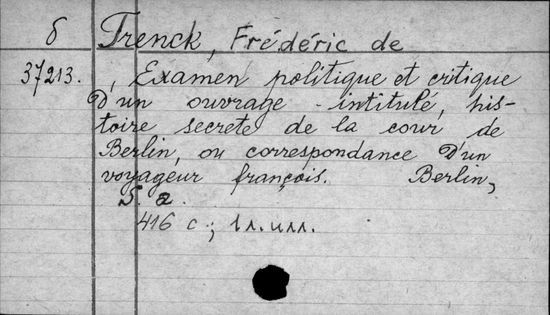 б Trenck, Frédéric de
37213. , Examen politique et critique
D'un ouvrage - intitulé, his-
toire secrete de la cour de
Berlin, ou correspondance D'un
voyageur françois. Berlin,
S. a.
416 c.; 1 л. илл.